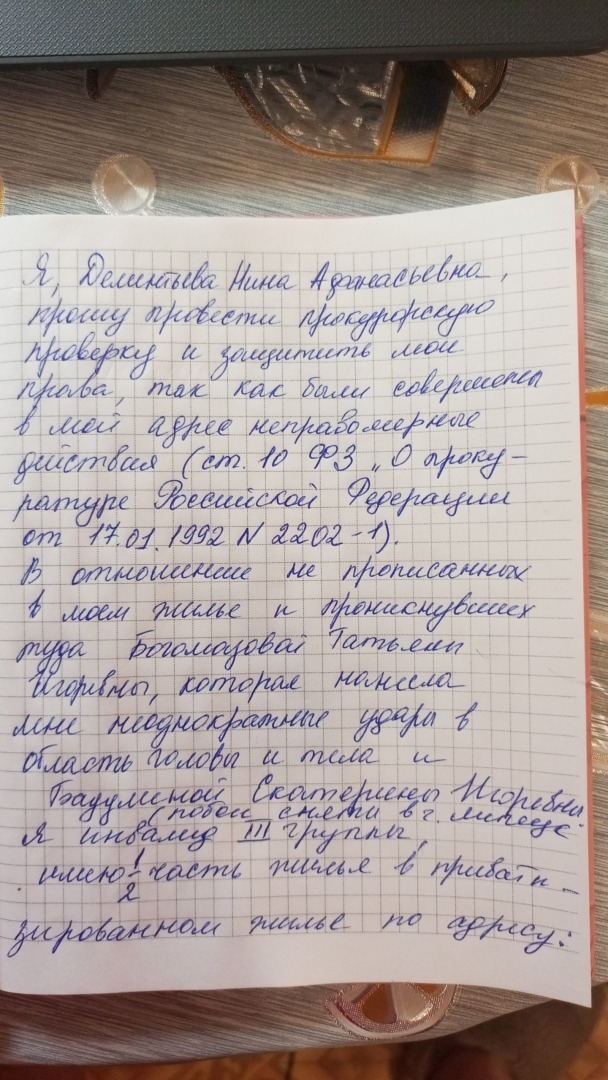 Я, Дементьева Нина Афанасьевна,
прошу провести прокурорскую
проверку и защитить мои
права, так как были совершены
в мой адрес неправомерные
действия (ст. 10 ФЗ „О проку-
ратуре Российской Федерации
от 17.01.1992 N 2202-1).
В отношение не прописанных
в моем жилье и проникнувших
туда Богомазовой Татьяны
Игоревны, которая нанесла
мне неоднократные удары в
область головы и тела и
Бадулиной Екатерины Игоревны
(побои сняты в г. Липецк
Я инвалид III группы,
имею 1/2 часть жилья в привати-
зированном жилье по адресу: